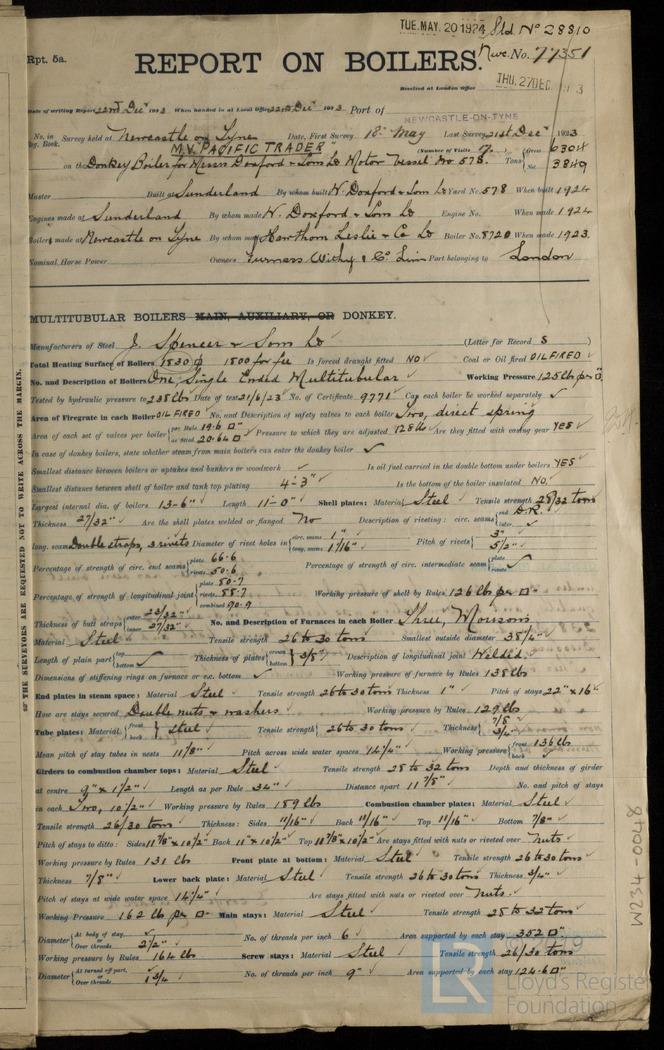 TUE. MAY. 20 1924 Sld No 28810
Rpt. 5a.
REPORT ON BOILERS.
Nwc. No. 77351
Received at London Office THU. 27 DEC
Date of writing Report 22nd Decr 1923 When handed in at Local Office 22nd Decr 1923 Port of NEWCASTLE-ON-TYNE
No. in Reg. Book. Survey held at Newcastle on Tyne Date, First Survey 18th May Last Survey 21st Decr 1923
"M.V. PACIFIC TRADER" (Number of Visits 17.)
on the Donkey Boiler for Messrs Doxford & Sons Ld Motor Vessel No 578. Tons Gross 6304 Net 3849
Master Built at Sunderland By whom built W. Doxford & Sons Ld Yard No. 578 When built 1924
Engines made at Sunderland By whom made W. Doxford & Sons Ld Engine No. When made 1924
Boilers made at Newcastle on Tyne By whom made Hawthorn Leslie & Co Ld Boiler No. 8720 When made 1923.
Nominal Horse Power Owners Furness Withy & Co. Lim Port belonging to London
MULTITUBULAR BOILERS MAIN, AUXILIARY, OR DONKEY.
Manufacturers of Steel J. Spencer & Sons Ld (Letter for Record S)
Total Heating Surface of Boilers 1830 1800 for fee Is forced draught fitted NO Coal or Oil fired OIL FIRED
No. and Description of Boilers One, Single Ended Multitubular Working Pressure 125 lbs per □"
Tested by hydraulic pressure to 238 lbs Date of test 21/6/23 No. of Certificate 9771 Can each boiler be worked separately ✓
Area of Firegrate in each Boiler OIL FIRED No. and Description of safety valves to each boiler Two, direct spring
Area of each set of valves per boiler per Rule 19.6 □" as fitted 20.64 □" Pressure to which they are adjusted 128 lbs Are they fitted with easing gear YES
In case of donkey boilers, state whether steam from main boilers can enter the donkey boiler ✓
Smallest distance between boilers or uptakes and bunkers or woodwork ✓ Is oil fuel carried in the double bottom under boilers YES
Smallest distance between shell of boiler and tank top plating 4'-3" Is the bottom of the boiler insulated NO.
Largest internal dia. of boilers 13'-6" Length 11'-0" Shell plates: Material Steel Tensile strength 28/32 tons
Thickness 27/32" Are the shell plates welded or flanged No Description of riveting: circ. seams end D.R. inter. ✓
long. seams Double straps, 3 rivets Diameter of rivet holes in circ. seams 1" long. seams 1 1/16" Pitch of rivets 3" 5 1/2"
Percentage of strength of circ. end seams plate 66.6 rivets 50.6 Percentage of strength of circ. intermediate seam plate rivets ✓
Percentage of strength of longitudinal joint plate 80.7 rivets 88.7 combined 90.9 Working pressure of shell by Rules 126 lbs per □"
Thickness of butt straps outer 23/32" inner 27/32" No. and Description of Furnaces in each Boiler Three, Morisons
Material Steel Tensile strength 26 to 30 tons Smallest outside diameter 38 1/4"
Length of plain part top bottom ✓ Thickness of plates crown bottom 3/8" Description of longitudinal joint Welded.
Dimensions of stiffening rings on furnace or c.c. bottom ✓ Working pressure of furnace by Rules 138 lbs
End plates in steam space: Material Steel Tensile strength 26 to 30 tons Thickness 1" Pitch of stays 22" × 16"
How are stays secured Double nuts & washers Working pressure by Rules 129 lbs
Tube plates: Material front back Steel Tensile strength 26 to 30 tons Thickness 7/8" 3/4"
Mean pitch of stay tubes in nests 11 1/8" Pitch across wide water spaces 14 1/4" Working pressure front 136 lbs back ✓
Girders to combustion chamber tops: Material Steel Tensile strength 28 to 32 tons Depth and thickness of girder
at centre 9" × 1 1/2" Length as per Rule 34" Distance apart 11 7/8" No. and pitch of stays
in each Two, 10 1/2" Working pressure by Rules 189 lbs Combustion chamber plates: Material Steel
Tensile strength 26/30 tons Thickness: Sides 11/16" Back 11/16" Top 11/16" Bottom 7/8"
Pitch of stays to ditto: Sides 11 7/8" × 10 1/2" Back 11" × 10 1/2" Top 11 7/8" × 10 1/2" Are stays fitted with nuts or riveted over Nuts
Working pressure by Rules 131 lbs Front plate at bottom: Material Steel Tensile strength 26 to 30 tons
Thickness 7/8" Lower back plate: Material Steel Tensile strength 26 to 30 tons Thickness 3/4"
Pitch of stays at wide water space 14 1/4" Are stays fitted with nuts or riveted over Nuts.
Working Pressure 162 lbs per □" Main stays: Material Steel Tensile strength 28 to 32 tons
Diameter At body of stay, or Over threads 2 1/2" No. of threads per inch 6 Area supported by each stay 352 □"
Working pressure by Rules 164 lbs Screw stays: Material Steel Tensile strength 26/30 tons
Diameter At turned off part, or Over threads 1 3/4" No. of threads per inch 9" Area supported by each stay 124.6 □"
THE SURVEYORS ARE REQUESTED NOT TO WRITE ACROSS THE MARGIN.
W234-0048
LR
Lloyd's Register
Foundation